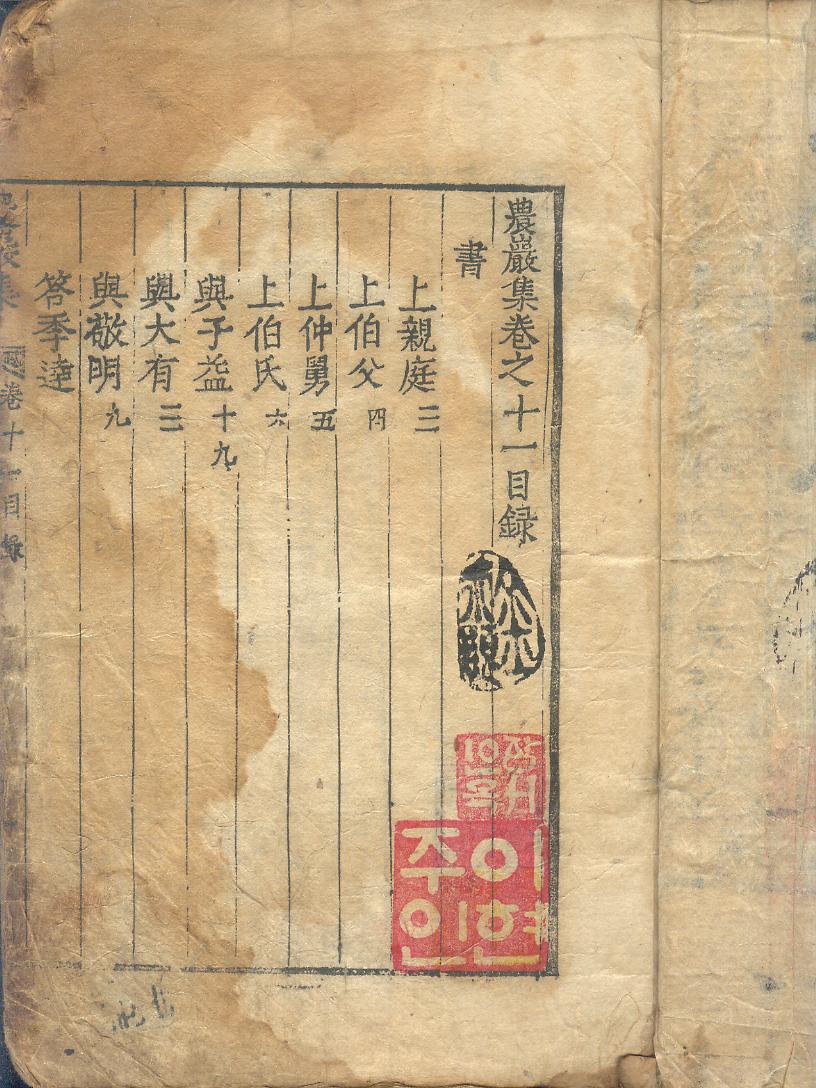 農巖集卷之十一目録
書
上親庭二
上伯父四
上仲舅五
上伯氏六
與子益十九
與大有三
與敬明九
答季達
巖集 卷十一目録
이현
주인